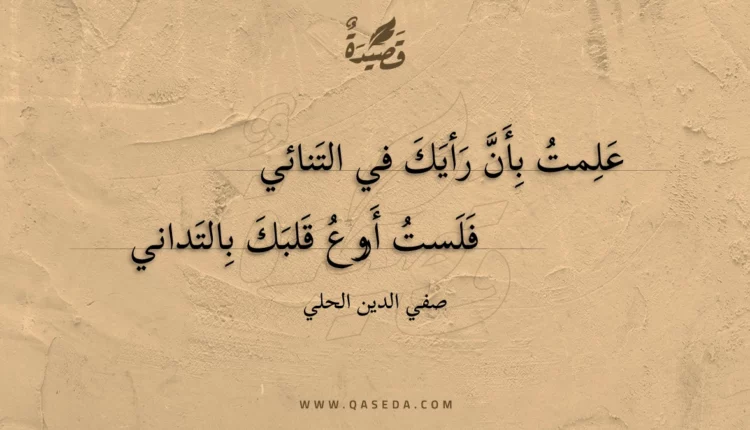 قَصِيدَةٌ
عَلِمتُ بِأَنَّ رَأيَكَ في التَنائي
فَلَستُ أَروعُ قَلبَكَ بِالتَداني
صفي الدين الحلي
WWW.QASEDA.COM